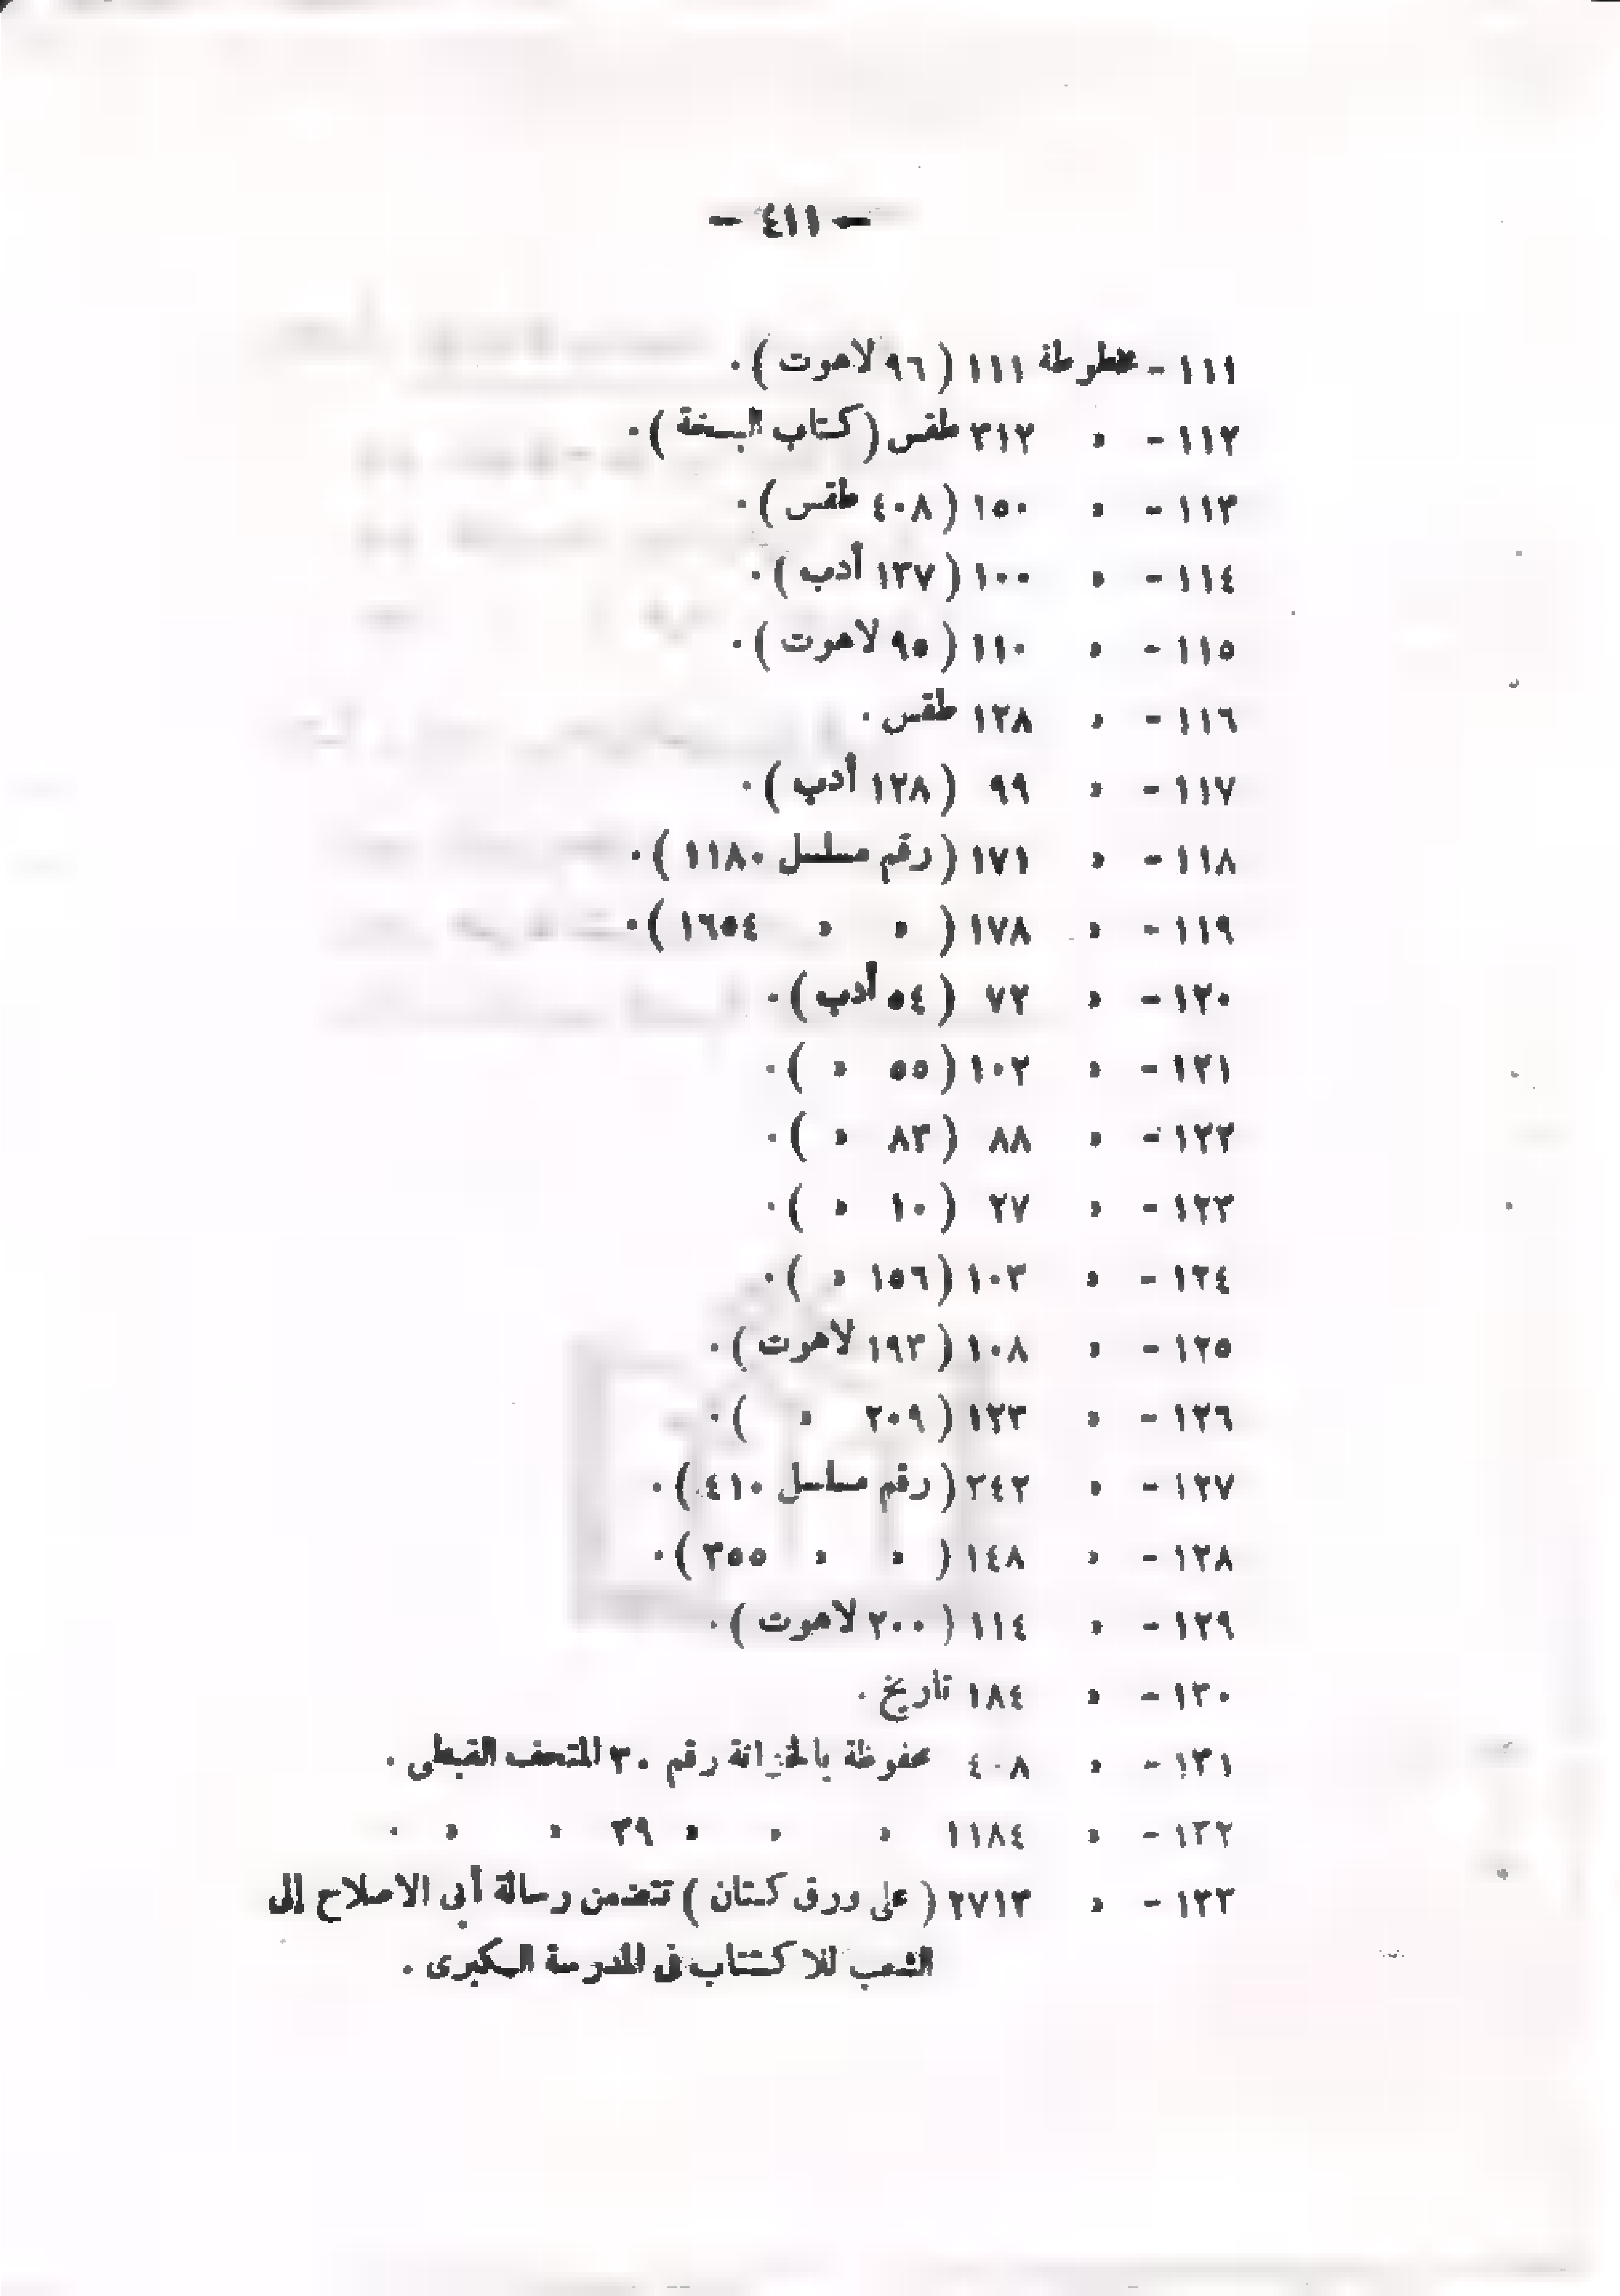 — ٤١١ —
١١١ - مخطوطة ١١١ ( ٩٦ لاهوت ) .
١١٢ - » ٣١٢ طقس ( كتاب البسخة ) .
١١٣ - » ١٥٠ ( ٤٠٨ طقس ) .
١١٤ - » ١٠٠ ( ١٣٧ أدب ) .
١١٥ - » ١١٠ ( ٩٥ لاهوت ) .
١١٦ - » ١٢٨ طقس .
١١٧ - » ٩٩ ( ١٢٨ أدب ) .
١١٨ - » ١٧١ ( رقم مسلسل ١١٨٠ ) .
١١٩ - » ١٧٨ ( » » ١٦٥٤ ) .
١٢٠ - » ٧٢ ( ٥٤ أدب ) .
١٢١ - » ١٠٢ ( ٥٥ » ) .
١٢٢ - » ٨٨ ( ٨٣ » ) .
١٢٣ - » ٢٧ ( ١٠ » ) .
١٢٤ - » ١٠٣ ( ١٥٦ » ) .
١٢٥ - » ١٠٨ ( ١٩٣ لاهوت ) .
١٢٦ - » ١٢٣ ( ٢٠٩ » ) .
١٢٧ - » ٢٤٢ ( رقم مسلسل ٤١٠ ) .
١٢٨ - » ١٤٨ ( » » ٣٥٥ ) .
١٢٩ - » ١١٤ ( ٢٠٠ لاهوت ) .
١٣٠ - » ١٨٤ تاريخ .
١٣١ - » ٤٠٨ محفوظة بالخزانة رقم ٣٠ المتحف القبطى .
١٣٢ - » ١١٨٤ » » » ٣٩ » » .
١٣٣ - » ٢٧١٣ ( على ورق كتان ) تتضمن رسالة أبى الاصلاح إلى
الشعب للاكتتاب فى المدرسة الكبرى .